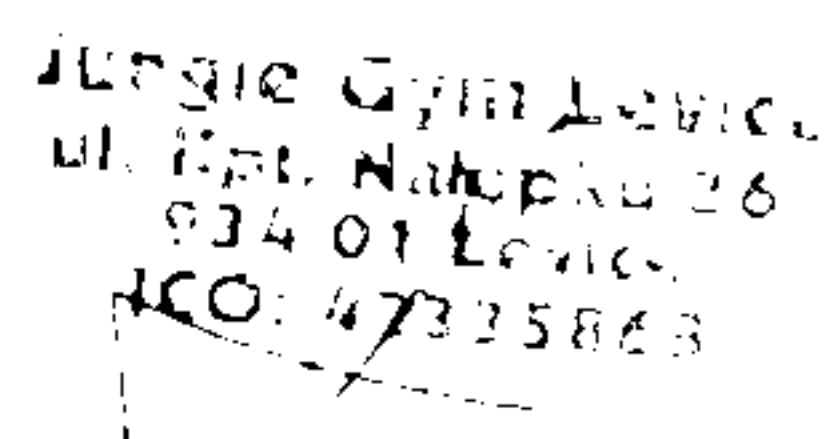 Jungle Gym Levice
ul. Kpt. Nálepku 26
934 01 Levice
IČO: 47335863